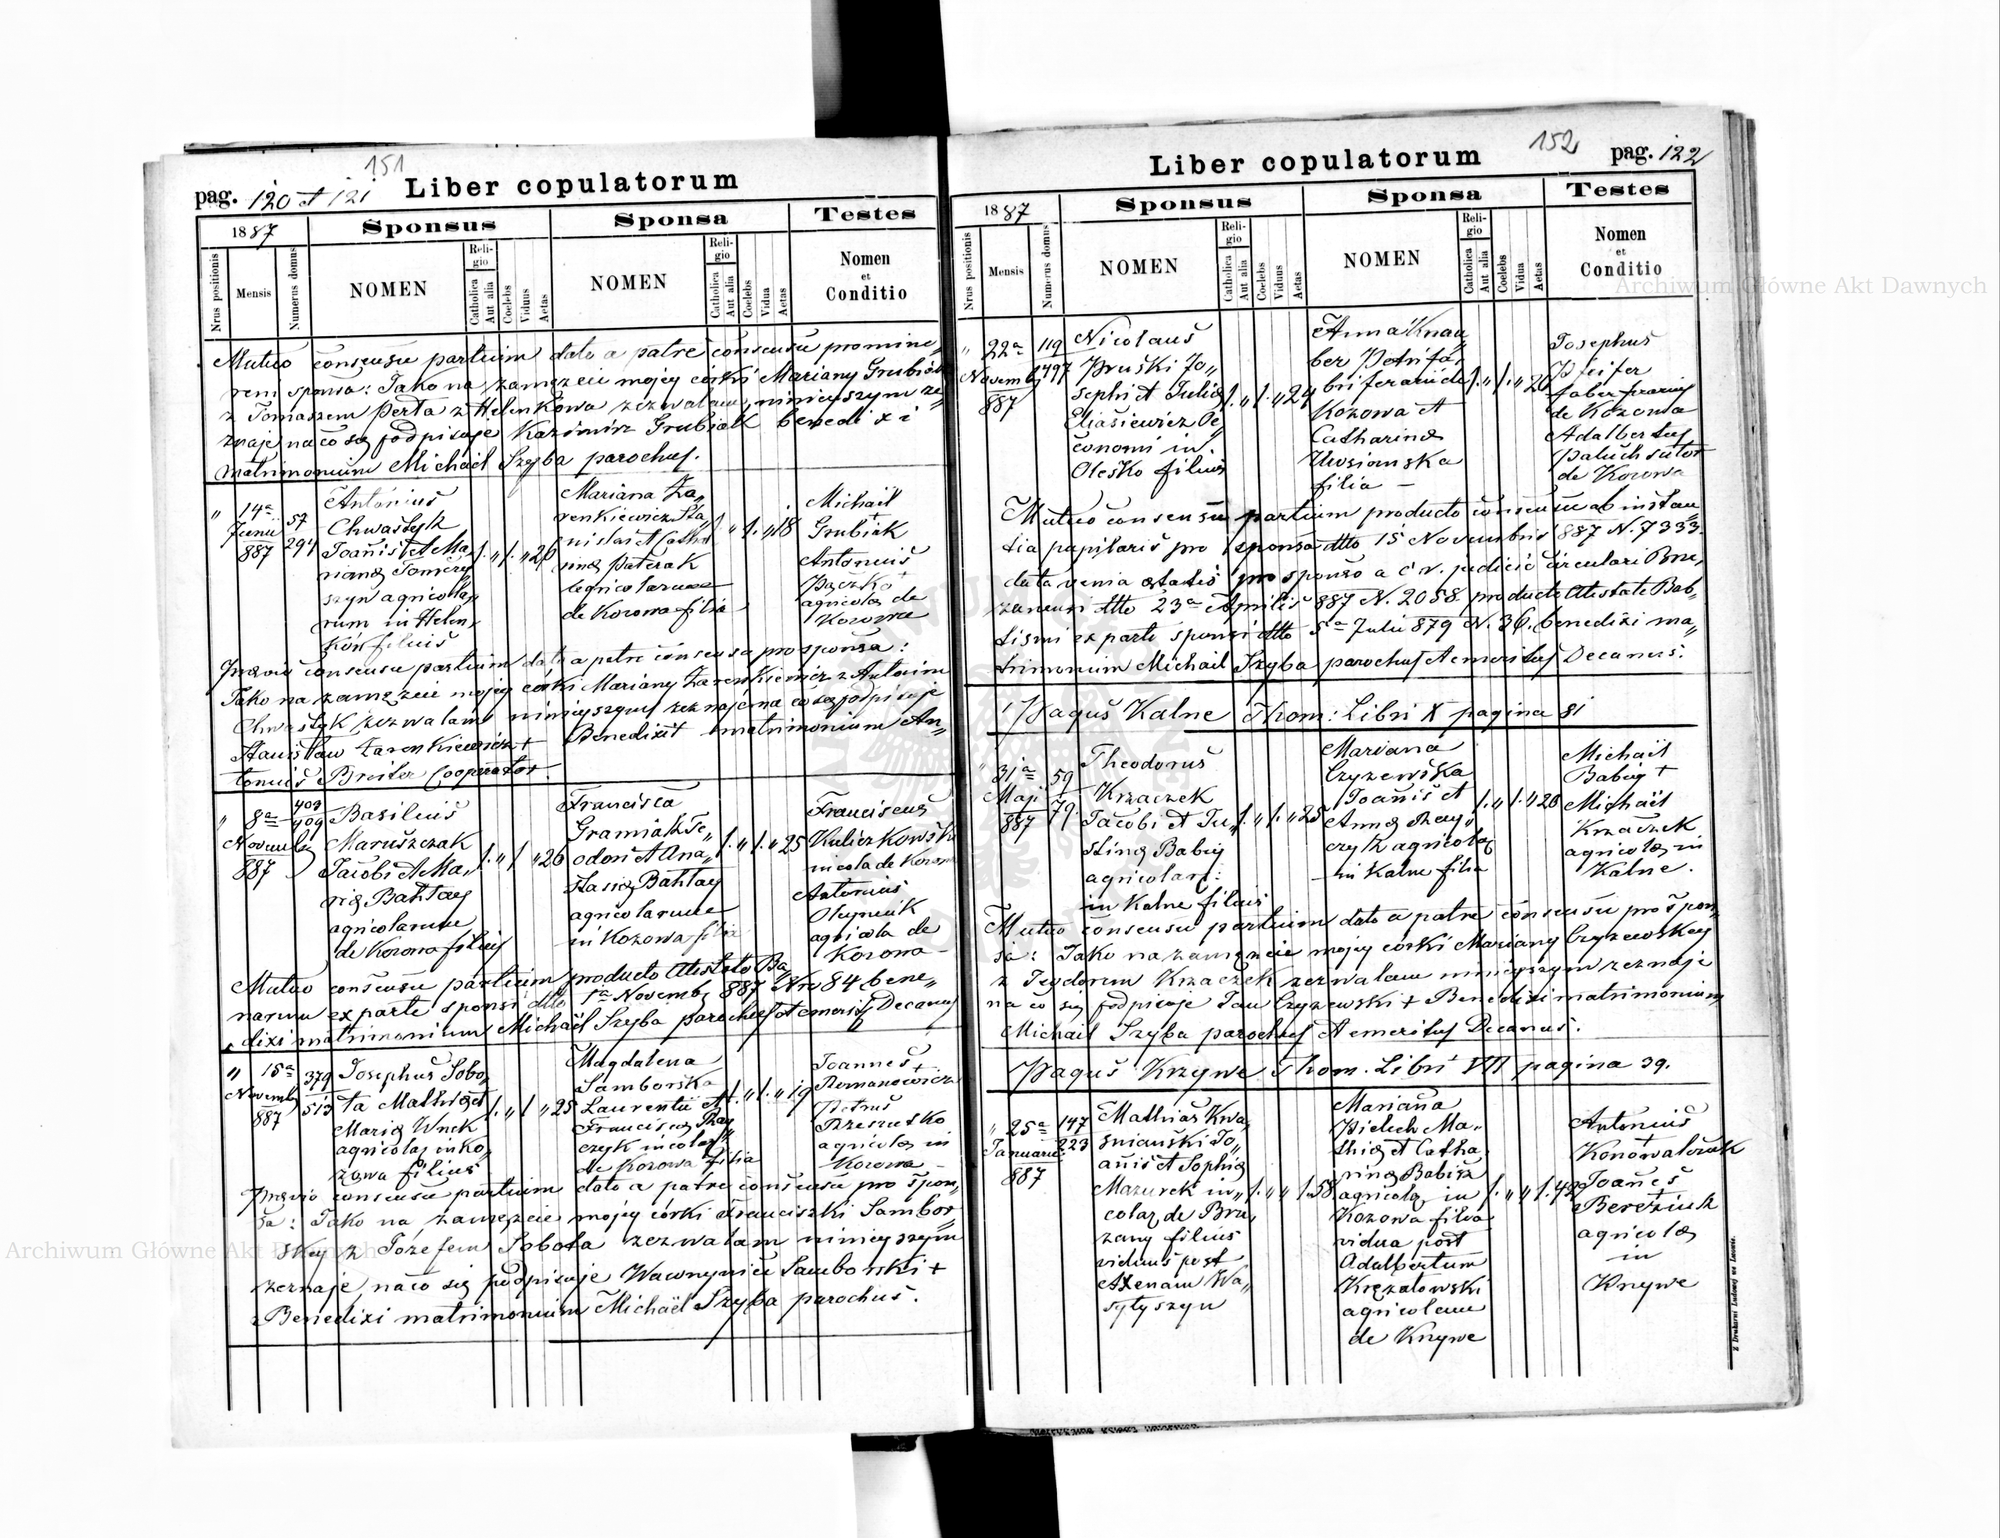 151
pag. 120 et 121 Liber copulatorum
1887
Sponsus
Sponsa
Testes
Nrus positionis
Mensis
Numerus domus
NOMEN
Religio
Catholica
Aut alia
Coelebs
Viduus
Aetas
NOMEN
Religio
Catholica
Aut alia
Coelebs
Vidua
Aetas
Nomen
et
Conditio
Mutuo consensu partium dato a patre consensu pro mino
reni sponsa: Jako na zamęzcie mojej córki Maryany Grubiak
z Tomaszem Perta z Helenkowa zezwalam, niniejszym ze
znaje na co się podpisuje Kazimirz Grubiak benedixi
matrimonium Michael Szyba parochus.
" 14a
Junii
887
57
294
Antonius
Chwastyk
Joannis et Ma
rianæ Tomczy
szyn agricola
rum in Helen,
ków filius
1 " 1 " " 26
Mariana Za„
renkiewicz Sta„
nislai et Catha
rinæ Paterak
agricolarum
de Kozowa filia
1 " 1 " " 18
Michaël
Grubiak +
Antonius
Pączko +
agricolæ de
Kozowa
Prævio consensu partium dato a patre consensu pro sponsa:
Jako na zamęzcie mojej córki Maryany Zarenkiewicz z Antonim
Chwastyk zezwalam niniejszym zeznaje na co się podpisuje
Stanisław Zarenkiewicz + Benedixit matrimonium An„
tonius Breiter Cooperator.
" 8a
Novembr
887
408
409
Basilius
Maruszczak
Jacobi et Ma„
riæ Bahtay
agricolarum
de Kozowa filius
1 " 1 " " 26
Francisca
Gramiak Te„
odori et Ana„
stasiæ Bahtay
agricolarum
in Kozowa filia
1 " 1 " " 25
Franciscus
Kuliczkowski
incola de Kozowa
Antonius
Oleynik
agricola de
Kozowa
Mutuo consensu partium producto Attestato Ba
narum ex parte sponsi dtto 1a Novembr 887 Nro 84 bene„
dixi matrimonium Michaël Szyba parochus et emerit Decanus
" 15a
Novembr
887
379
513
Josephus Sobo„
ta Mathiæ et
Mariæ Wnek
agricolæ in Ko„
zowa filius
1 " 1 " " 25
Magdalena
Samborska
Laurentii et
Franciscæ Ray„
czyk incolæ
de Kozowa filia
1 " 1 " " 19
Joannes +
Romanowicz
Petrus
Rzeszutko
agricolæ in
Kozowa
Prævio consensu partium dato a patre consensu pro spon„
sa: Jako na zamęzcie mojej córki Franciszki Sambor
skiej z Józefem Sobota zezwalam niniejszym
zeznaje, na co się podpisuje Wawrzyniec Samborski +
Benedixi matrimonium Michaël Szyba parochus.
152
Liber copulatorum pag. 122
1887
Sponsus
Sponsa
Testes
Nrus positionis
Mensis
Numerus domus
NOMEN
Religio
Catholica
Aut alia
Coelebs
Viduus
Aetas
NOMEN
Religio
Catholica
Aut alia
Coelebs
Vidua
Aetas
Nomen
et
Conditio
" 22a
Novembr
887
119
497
Nicolaus
Pruski Jo„
sephi et Juliæ
Eliasiewicz Oe„
conomi in
Olesko filius
1 " 1 " " 24
Anna Knau„
ber Petri fa„
bri ferarii de
Kozowa et
Catharinæ
Uwsianska
filia
1 " 1 " " 20
Josephus
Pfeifer
faber ferarius
de Kozowa
Adalbertus
Paluch sutor
de Kozowa
Mutuo consensu partium producto consensu ab instan„
tia pupilaris pro sponsa dtto 15 Novembris 887 N. 7333.
data venia ætatis pro sponso a c. r. judicio circulari Brze„
zanensi dtto 23a Aprilis 887 N. 2058. producto Atestate Bab„
tismi ex parte sponsi dtto 5a Julii 879 N. 36. benedixi ma„
trimonium Michael Szyba parochus et emeritus Decanus.
Pagus Kalne Thom: Libri X pagina 81
" 31a
Maji
887
59
79
Theodorus
Krzaczek
Jacobi et Ju„
stinæ Babij
agricolar:
in Kalne filius
1 " 1 " " 25
Mariana
Czyzewska
Joanis et
Annæ Ray„
czyk agricolæ
in Kalne filia
1 " 1 " " 20
Michaël
Babij +
Michaël
Krzaczek
agricolæ in
Kalne.
Mutuo consensu partium dato a patre consensu pro spon„
sa: Jako na zamęzcie mojej córki Maryany Czyzewskiej
z Teodorem Krzaczek zezwalam niniejszym zeznaje
na co się podpisuje Jan Czyzewski + Benedixi matrimonium
Michael Szyba parochus et emeritus Decanus.
Pagus Krzywe Thom. Libri VII pagina 39.
" 25a
Januarii
887
147
223
Mathias Kwa„
sniauski Jo„
anis et Sophiæ
Mazurek in„
colæ de Brze„
zany filius
viduus post
Axenam Wa„
sylyszyn
1 " " 1. 58
Mariana
Pielech Ma„
thiæ et Catha
rinæ Babicz
agricolæ in
Kozowa filia
vidua post
Adalbertum
Kręzatowski
agricolam
de Krzywe
1 " " 1. 42
Antonius
Konowalczuk +
Joanes
Bereziuk
agricolæ
in
Krzywe
Z Drukarni Ludowej we Lwowie.
Archiwum Główne Akt Dawnych
Archiwum Główne Akt Dawnych